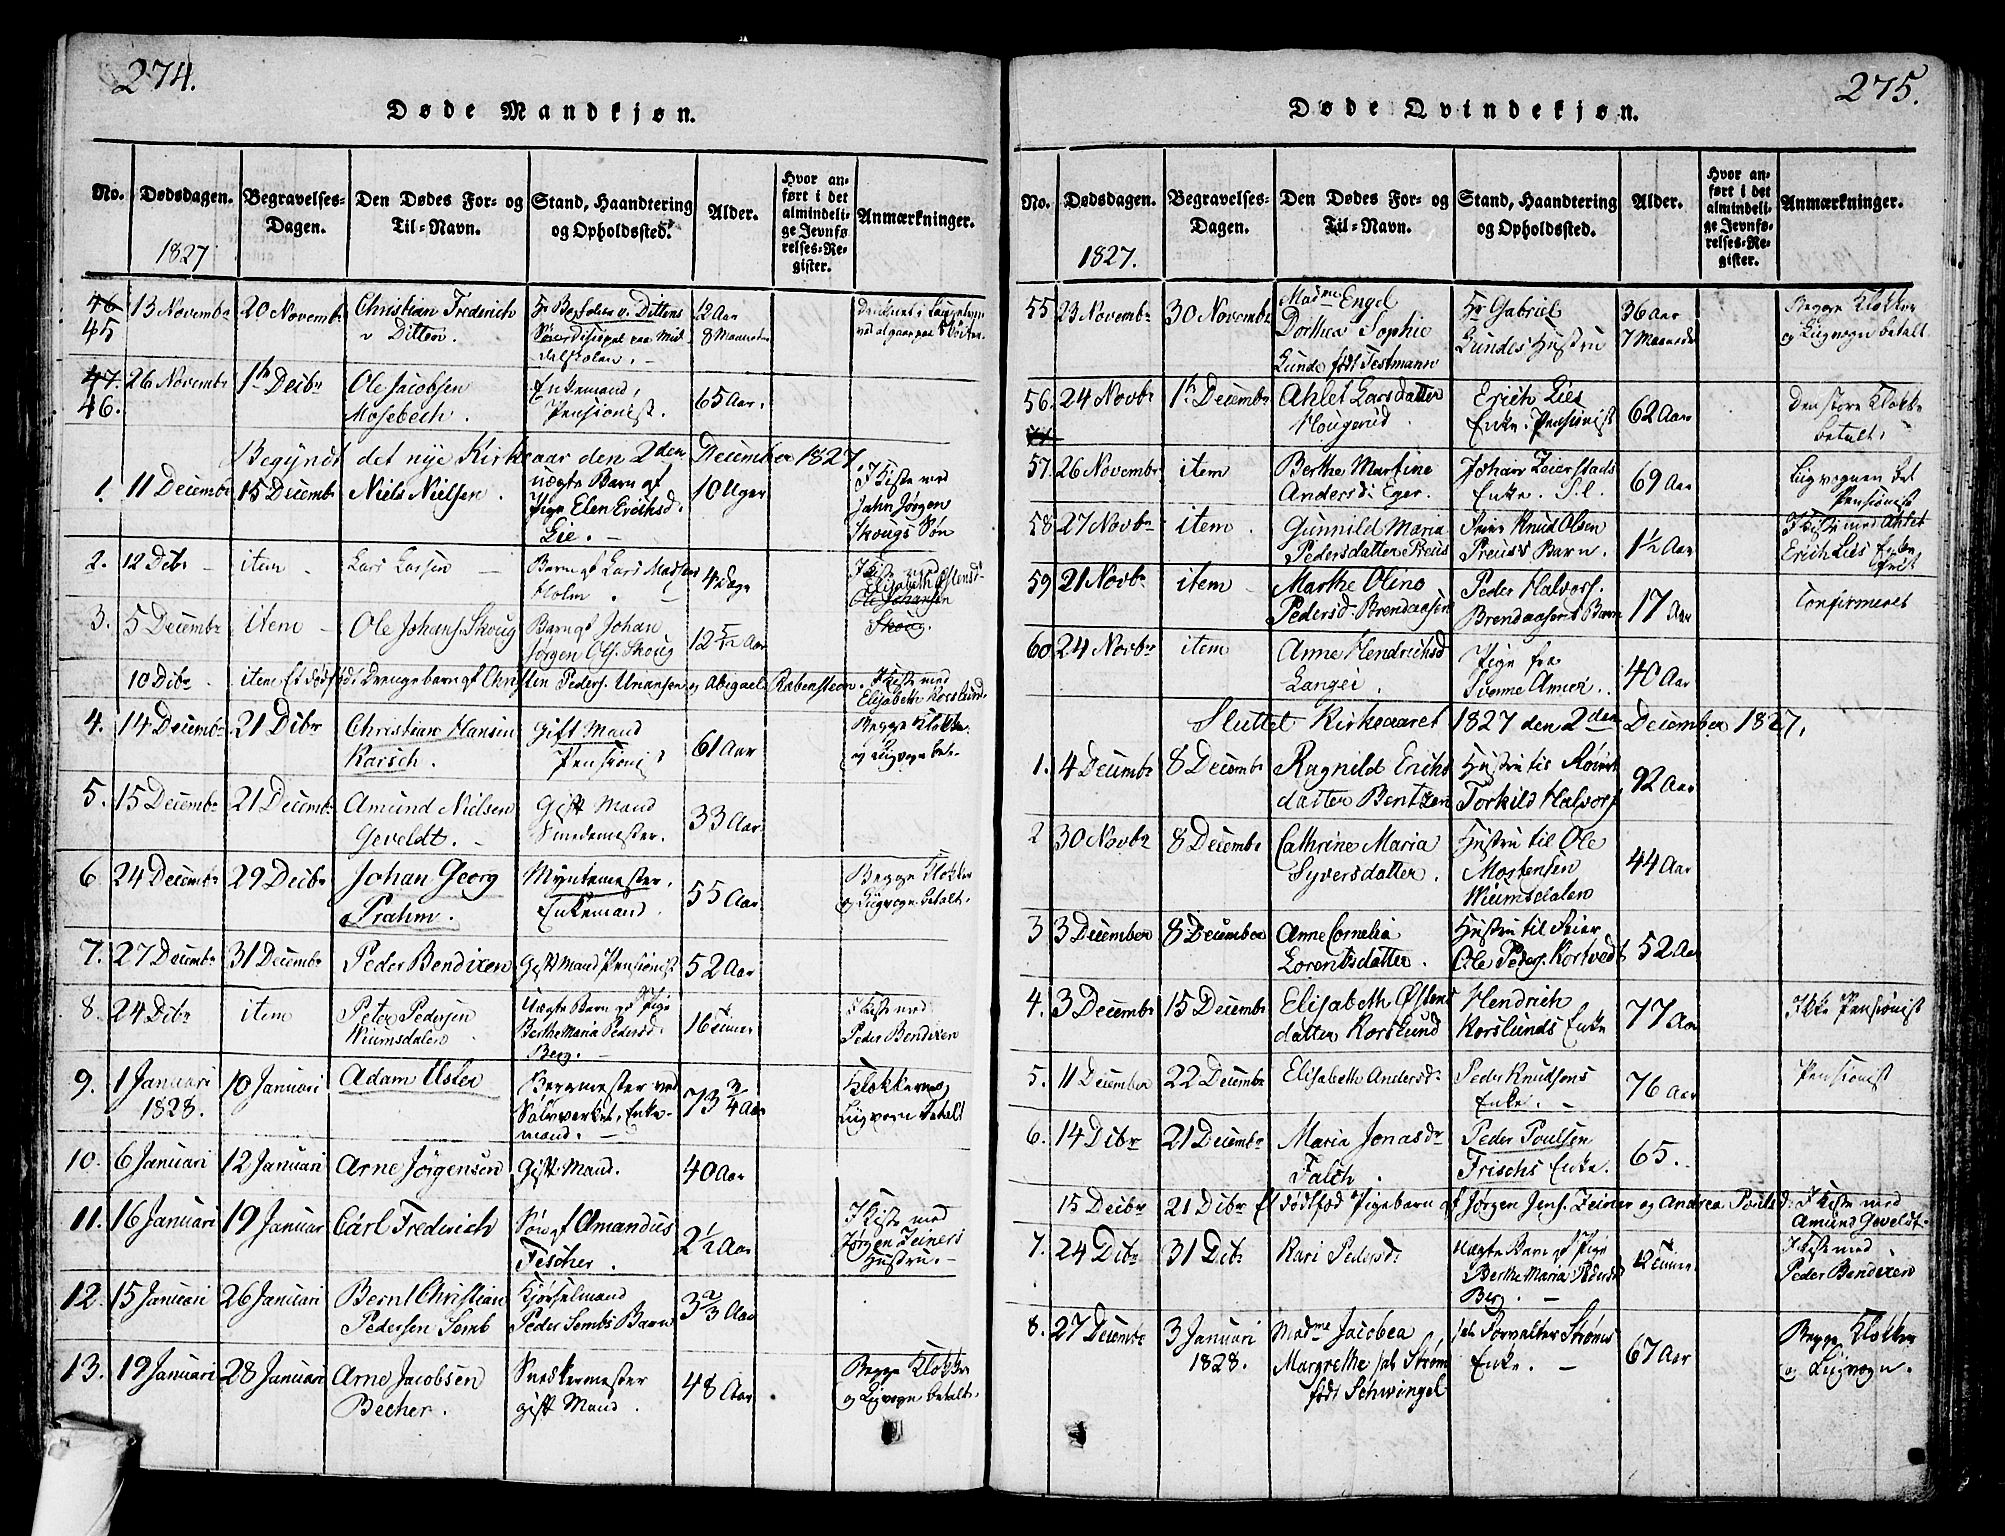 274.
Døde Mandkjøn.
No.
Dødsdagen.
1827
Begravelses-
Dagen.
Den Dødes For- og
Til-Navn.
Stand, Haandtering
og Opholdssted.
Alder.
Hvor an-
ført i det
almindeli-
ge Jevnfø-
relses-Re-
gister.
Anmærkninger.
46
45
13 Novembr
20 Novembr
Christian Frederich
v Ditten.
12 Aar
8 Maaneder
47.
46.
26 Novembr
1te Decbr
Ole Jacobsen
Mosebech.
Enkemand,
Pensionist.
65 Aar.
Begyndt det nye Kirkeaar den 2den December 1827.
1.
11 Decembr
15 Decembr
Niels Nielsen.
uægte Barn af
Pige Elen Erichsd.
Lie.
10 Uger
I Kiste med
Jahn Jørgen
Skougs Søn
2.
12 Decbr
item
Lars Larsen
Barn af Lars Madsen
Holm
4 Dage
I Kiste med
Elisabeth Østensd.
Ole Johansen
Skoug.
3.
5 Decembr
item
Ole Johans. Skoug
Barn af Johan
Jørgen Ols. Skoug
12 5/12 Aar
10 Dcbr
item Et dødfød: Drengebarn af Christen Peders. Unansen og Abigael Rabensteen.
I Kiste med
Elisabeth Korslund
4.
14 Decembr
21 Dcbr
Christian Hansen
Karsch.
Gift Mand
Pensionist
61 Aar
Begge Klokker
og Liigvogn bet.
5.
15 Decembr
21 Decembr
Amund Nielsen
Geveldt.
Gift Mand
Smedemester.
33 Aar
6.
24 Decembr
29 Decbr
Johan Georg
Prahm.
Myntemester,
Enkemand.
55 Aar
Begge Klokker
og Liigvogn betalt.
7.
27 Decembr
31 Decembr
Peder Bendixen
Gift Mand Pensionist
52 Aar
8.
24 Dcbr
item
Peter Pedersen
Wiumsdalen
Uægte Barn af Pige
Berthe Maria Pedersd.
Berg.
16 Timer
I Kiste med
Peder Bendixen
9.
1 Januari
1828.
10 Januari
Adam Uslen
Bergmester ved
Sølvverket, Enke-
mand.
73 3/4 Aar
Klokkerne og
Liigvogn betalt
10.
6 Januari
12 Januari
Arne Jørgensen
Gift Mand.
40 Aar
11.
16 Januari
19 Januar
Carl Frederich
Søn af Amandus
Fischer.
2 1/2 Aar
I Kiste med
Jørgen Zeiners
Hustru.
12.
15 Januari
26 Januari
Bernt Christian
Pedersen Semb
Kjørselmand
Peder Sembs Barn
3 2/3 Aar
13.
19 Januari
28 Januari
Arne Jacobsen
Becher.
Snedkermester
gift Mand.
48 Aar
Begge Klokker
og Liigvogn betalt.
275.
Døde Qvindekjøn.
No.
Dødsdagen.
1827.
Begravelses-
Dagen.
Den Dødes For- og
Til-Navn.
Stand, Haandtering
og Opholdssted.
Alder.
Hvor an-
ført i det
almindeli-
ge Jevnfø-
relses-Re-
gister.
Anmærkninger.
55
23 Novembr
30 Novembr
Madme Engel
Dorthea Sophie
Lunde født Testmann
Hr Gabriel
Lundes Hustru
36 Aar
7 Maaneder
Begge Klokker
og Liigvogn betalt
56.
24 Novbr
1te Decembr
Ahlet Larsdatter
Hougerud.
Erich Lies
Enke. Pensionist
62 Aar
Den store Klokke
betalt.
57.
26 Novembr
item
Berthe Martine
Andersd: Eger.
Johan Zeierstads
Enke. S.l.
69 Aar
Liigvognen bet
Pensionist
58
27 Novbr
item.
Gunnild Maria
Pedersdatter Preus
Knud Olsen
Preus's Barn.
1 1/2 Aar
I Kiste med Ahlet
Erich Lies Enke
59
21 Novbr
item
Marthe Olino
Pedersd. Brendaasen
Peder Halvors.
Brendaasens Barn
17 Aar
Confirmeret
60
24 Novbr
item
Anne Hendrichsd
Langei.
Pige fra
40 Aar
Sluttet Kirkeaaret 1827 den 2den December 1827.
1.
4 Decembr
8 Decembr
Ragnild Erichs
datter Bentzen
Hustru til
Torkild Halvors
92 Aar
2
30 Novbr
8 Decembr
Cathrine Maria
Syversdatter.
Hustru til Ole
Mortensen
Wiumsdalen
44 Aar
3
3 December
8 December
Anne Cornelia
Lorentsdatter.
Hustru til Feier
Ole Peders. Kortvedt
52 Aar
4.
3 Decembr
15 Decembr
Elisabeth Østens
datter Korslund
Hendrich
Korslunds Enke
77 Aar
Ikke Pensionist
5.
11 Decembr
22 Decembr
Elisabeth Andersdr
Peder Knudsens
Enke.
76 Aar
Pensionist
6.
14 Dcbr
21 Decembr
Maria Jonasdr
Falch.
Peder Poulsen
Frischs Enke.
65.
15 Decbr
21 Dcbr Et dødfød Pigebarn af Jørgen Jens. Zeiner og Andrea
I Kiste med
Amund Geveldt.
7.
24 Dcbr
31 Dcbr
Kari Pedersd:
Uægte Barn af Pige
Berthe Maria Pedersd
Berg.
12 Timer
I Kiste med
Peder Bendixen
8.
27 Decembr
3 Januari
1828.
Madme Jacobea
Margrethe sal. Strøm
født Schwingel
sal. Forvalter Strøms
Enke.
67 Aar
Begge Klokker
og Liigvogn.